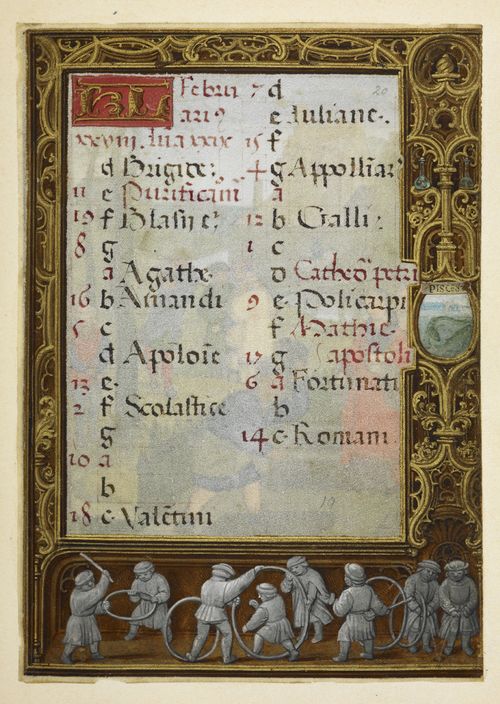 KL Februi
ariꝰ
xxviii. lũa xxix
d Brigide.
11 e Purificam̃
19 f Blasije.
8 g
a Agathe.
16 b Amandi
5 c
d Apoloĩe
13 e.
2 f Scolastice
g
10 a
b
18 c Valẽtini
20
7 d
e Iuliane.
15 f
4 g Appollĩar
a
12 b Galli.
1 c
d Cathed̃ petri
9 e. Policarpi
f Mathie.
17 g apostoli
6 a Fortunati
b
14 c. Romani.
PISCES